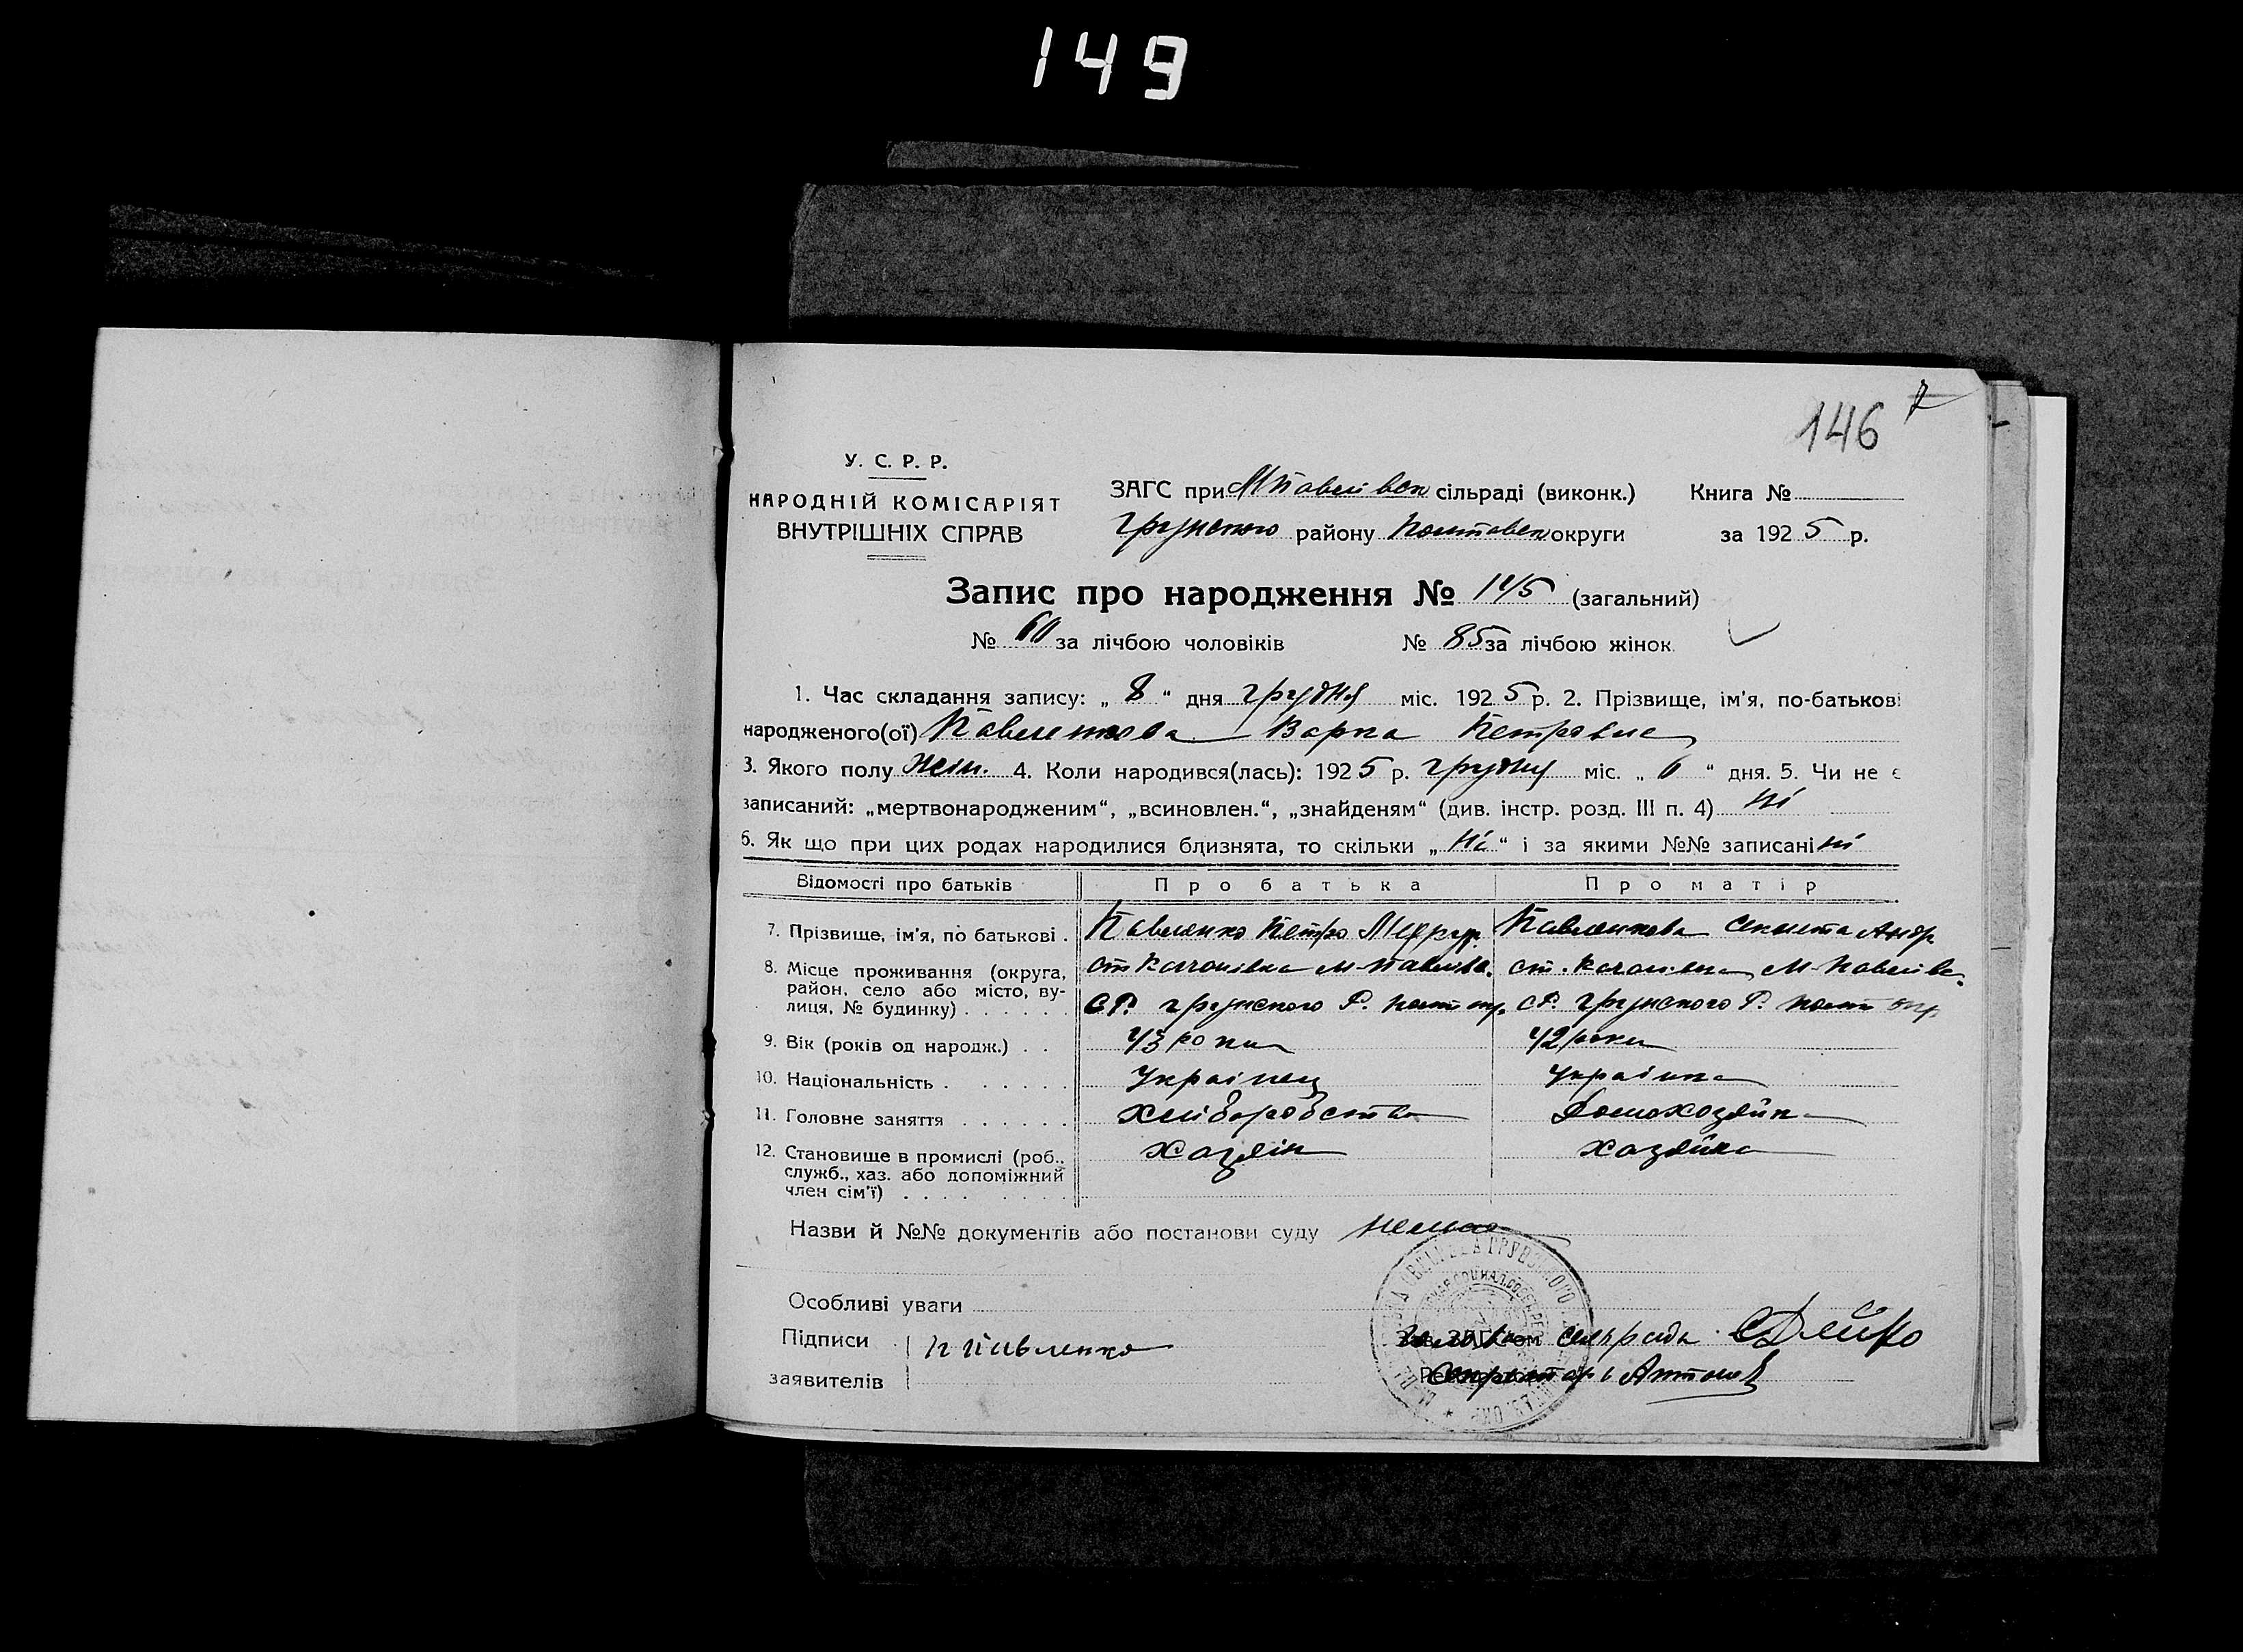 149
146 7
У. С. Р. Р.
НАРОДНІЙ КОМІСАРІЯТ
ВНУТРІШНІХ СПРАВ
ЗАГС при М Павлівск сільраді (виконк.) Книга №
Грунского району Полтавск округи за 1925 р.
Запис про народження № 145 (загальний)
№ 60 за лічбою чоловіків № 85 за лічбою жінок
1. Час складання запису: „ 8 “ дня грудня міс. 1925 р. 2. Прізвище, ім'я, по-батькові
народженого(ої) Павленкова Варка Петровна
3. Якого полу жін. 4. Коли народився(лась): 1925 р. грудня міс. „ 6 “ дня. 5. Чи не є
записаний: „мертвонародженим“, „всиновлен.“, „знайденям“ (див. інстр. розд. III п. 4) ні
6. Як що при цих родах народилися близнята, то скільки „ ні “ і за якими №№ записані ні
Відомості про батьків Про батька Про матір
7. Прізвище, ім'я, по батькові . Павленко Петро Павленкова Андр
8. Місце проживання (округа, район, село або місто, вулиця, № будинку) . . . . . . М-Павлівс. М-Павлівс.
СР. Грунского Р. Полт окр. СР. Грунского Р. Полт окр
9. Вік (років од народж.) . . 43 роки 42 роки
10. Національність . . . . . . . Українец Українка
11. Головне заняття . . . . . . Хліборобство Домохозяйка
12. Становище в промислі (роб., служб., хаз. або допоміжний член сім'ї) . . . . Хазяін Хазяйка
Назви й №№ документів або постанови суду немає
Особливі уваги
Підписи П Павленко
заявителів
Голова сельради СДейко
Секретарь Антонов